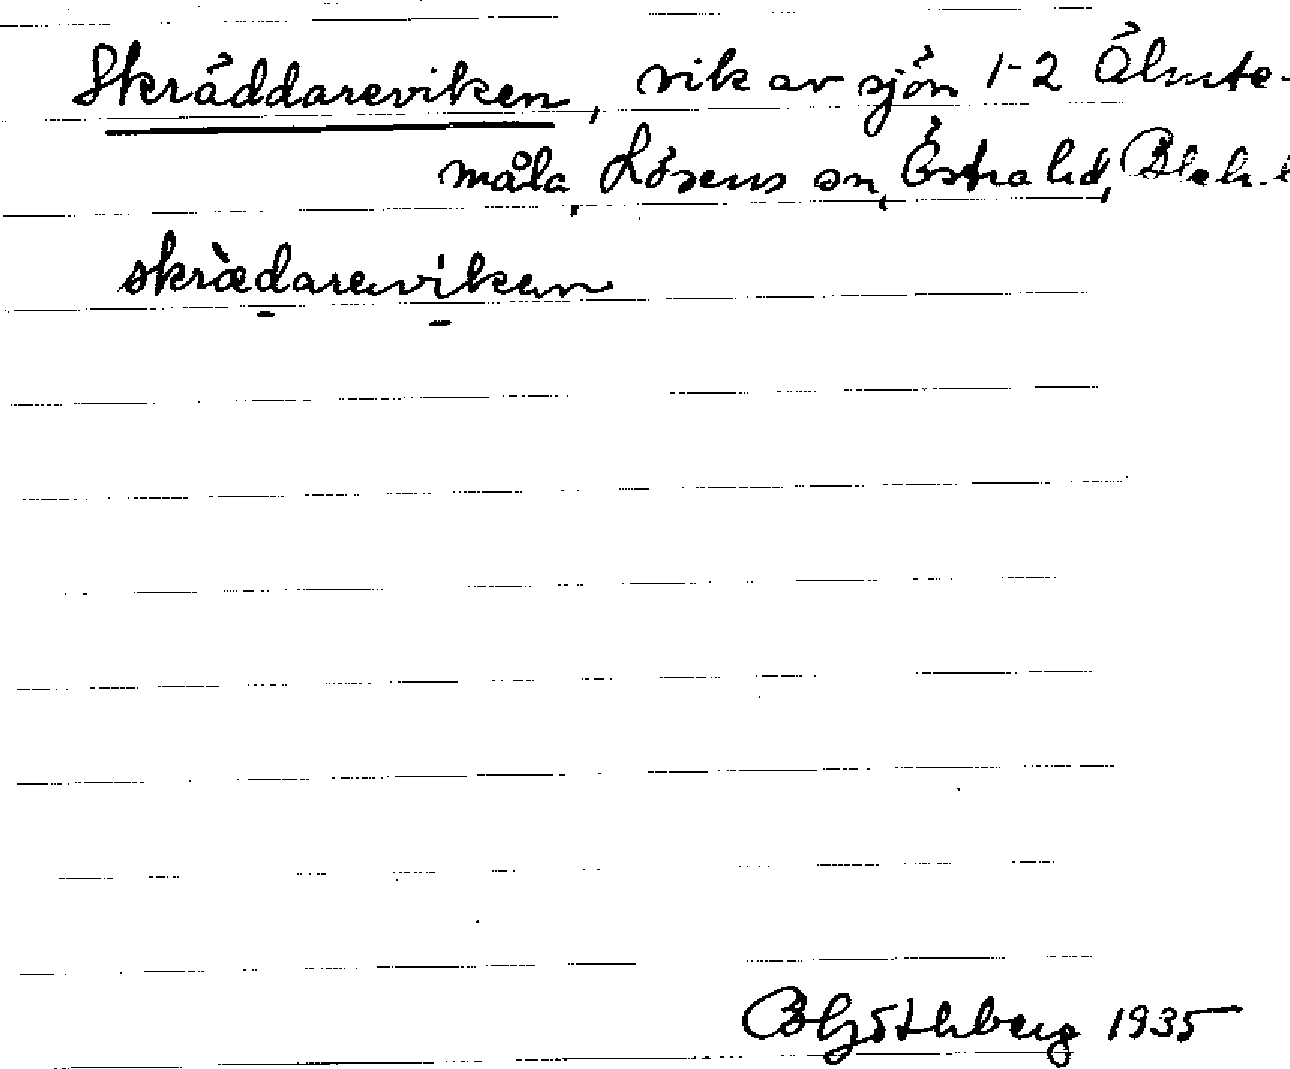 Skräddareviken, vik av sjön 1-2 Älmte-
måla, Lösens sn, Östra hd, Blek. l
skrædareviken
B Göthberg 1935